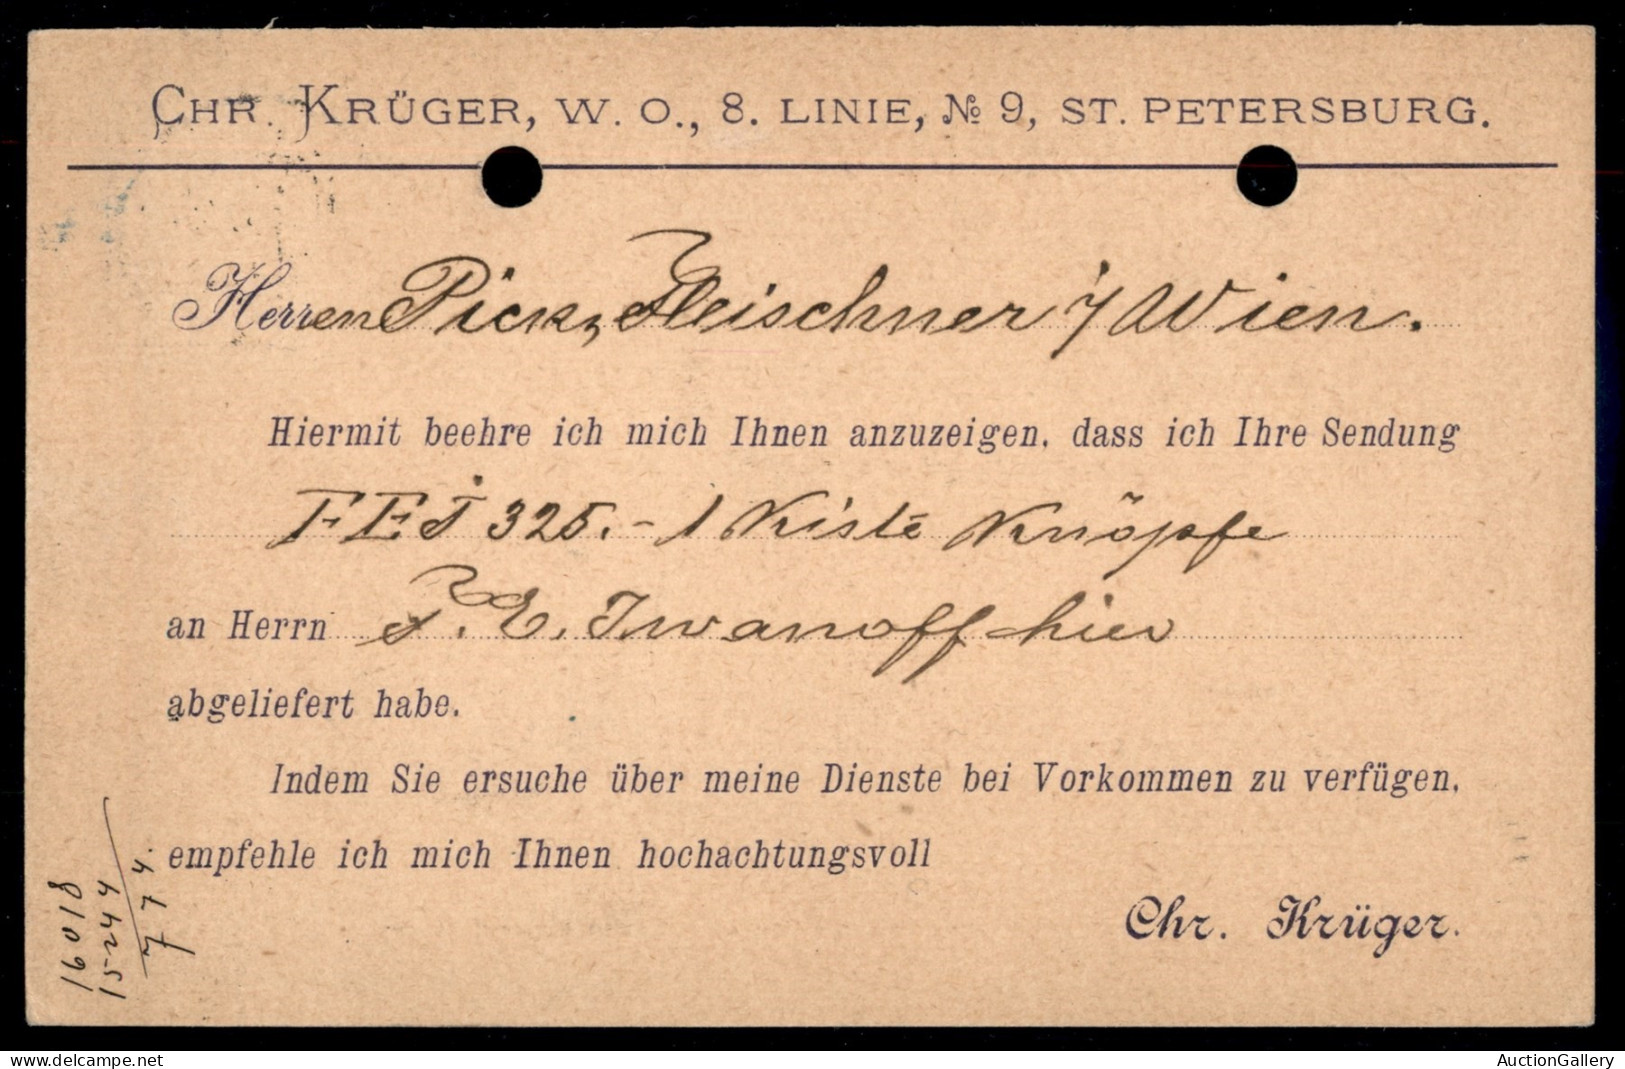 CHR. KRÜGER, W. O., 8. LINIE, № 9, ST. PETERSBURG.
Herren Pick, Fleischner i/Wien.
Hiermit beehre ich mich Ihnen anzuzeigen, dass ich Ihre Sendung
FEJ 325.- 1 Kiste Knöpfe
an Herrn F. E. Iwanoff hier
abgeliefert habe.
Indem Sie ersuche über meine Dienste bei Vorkommen zu verfügen,
empfehle ich mich Ihnen hochachtungsvoll
Chr. Krüger.
16018
15244
774.
AuctionGallery